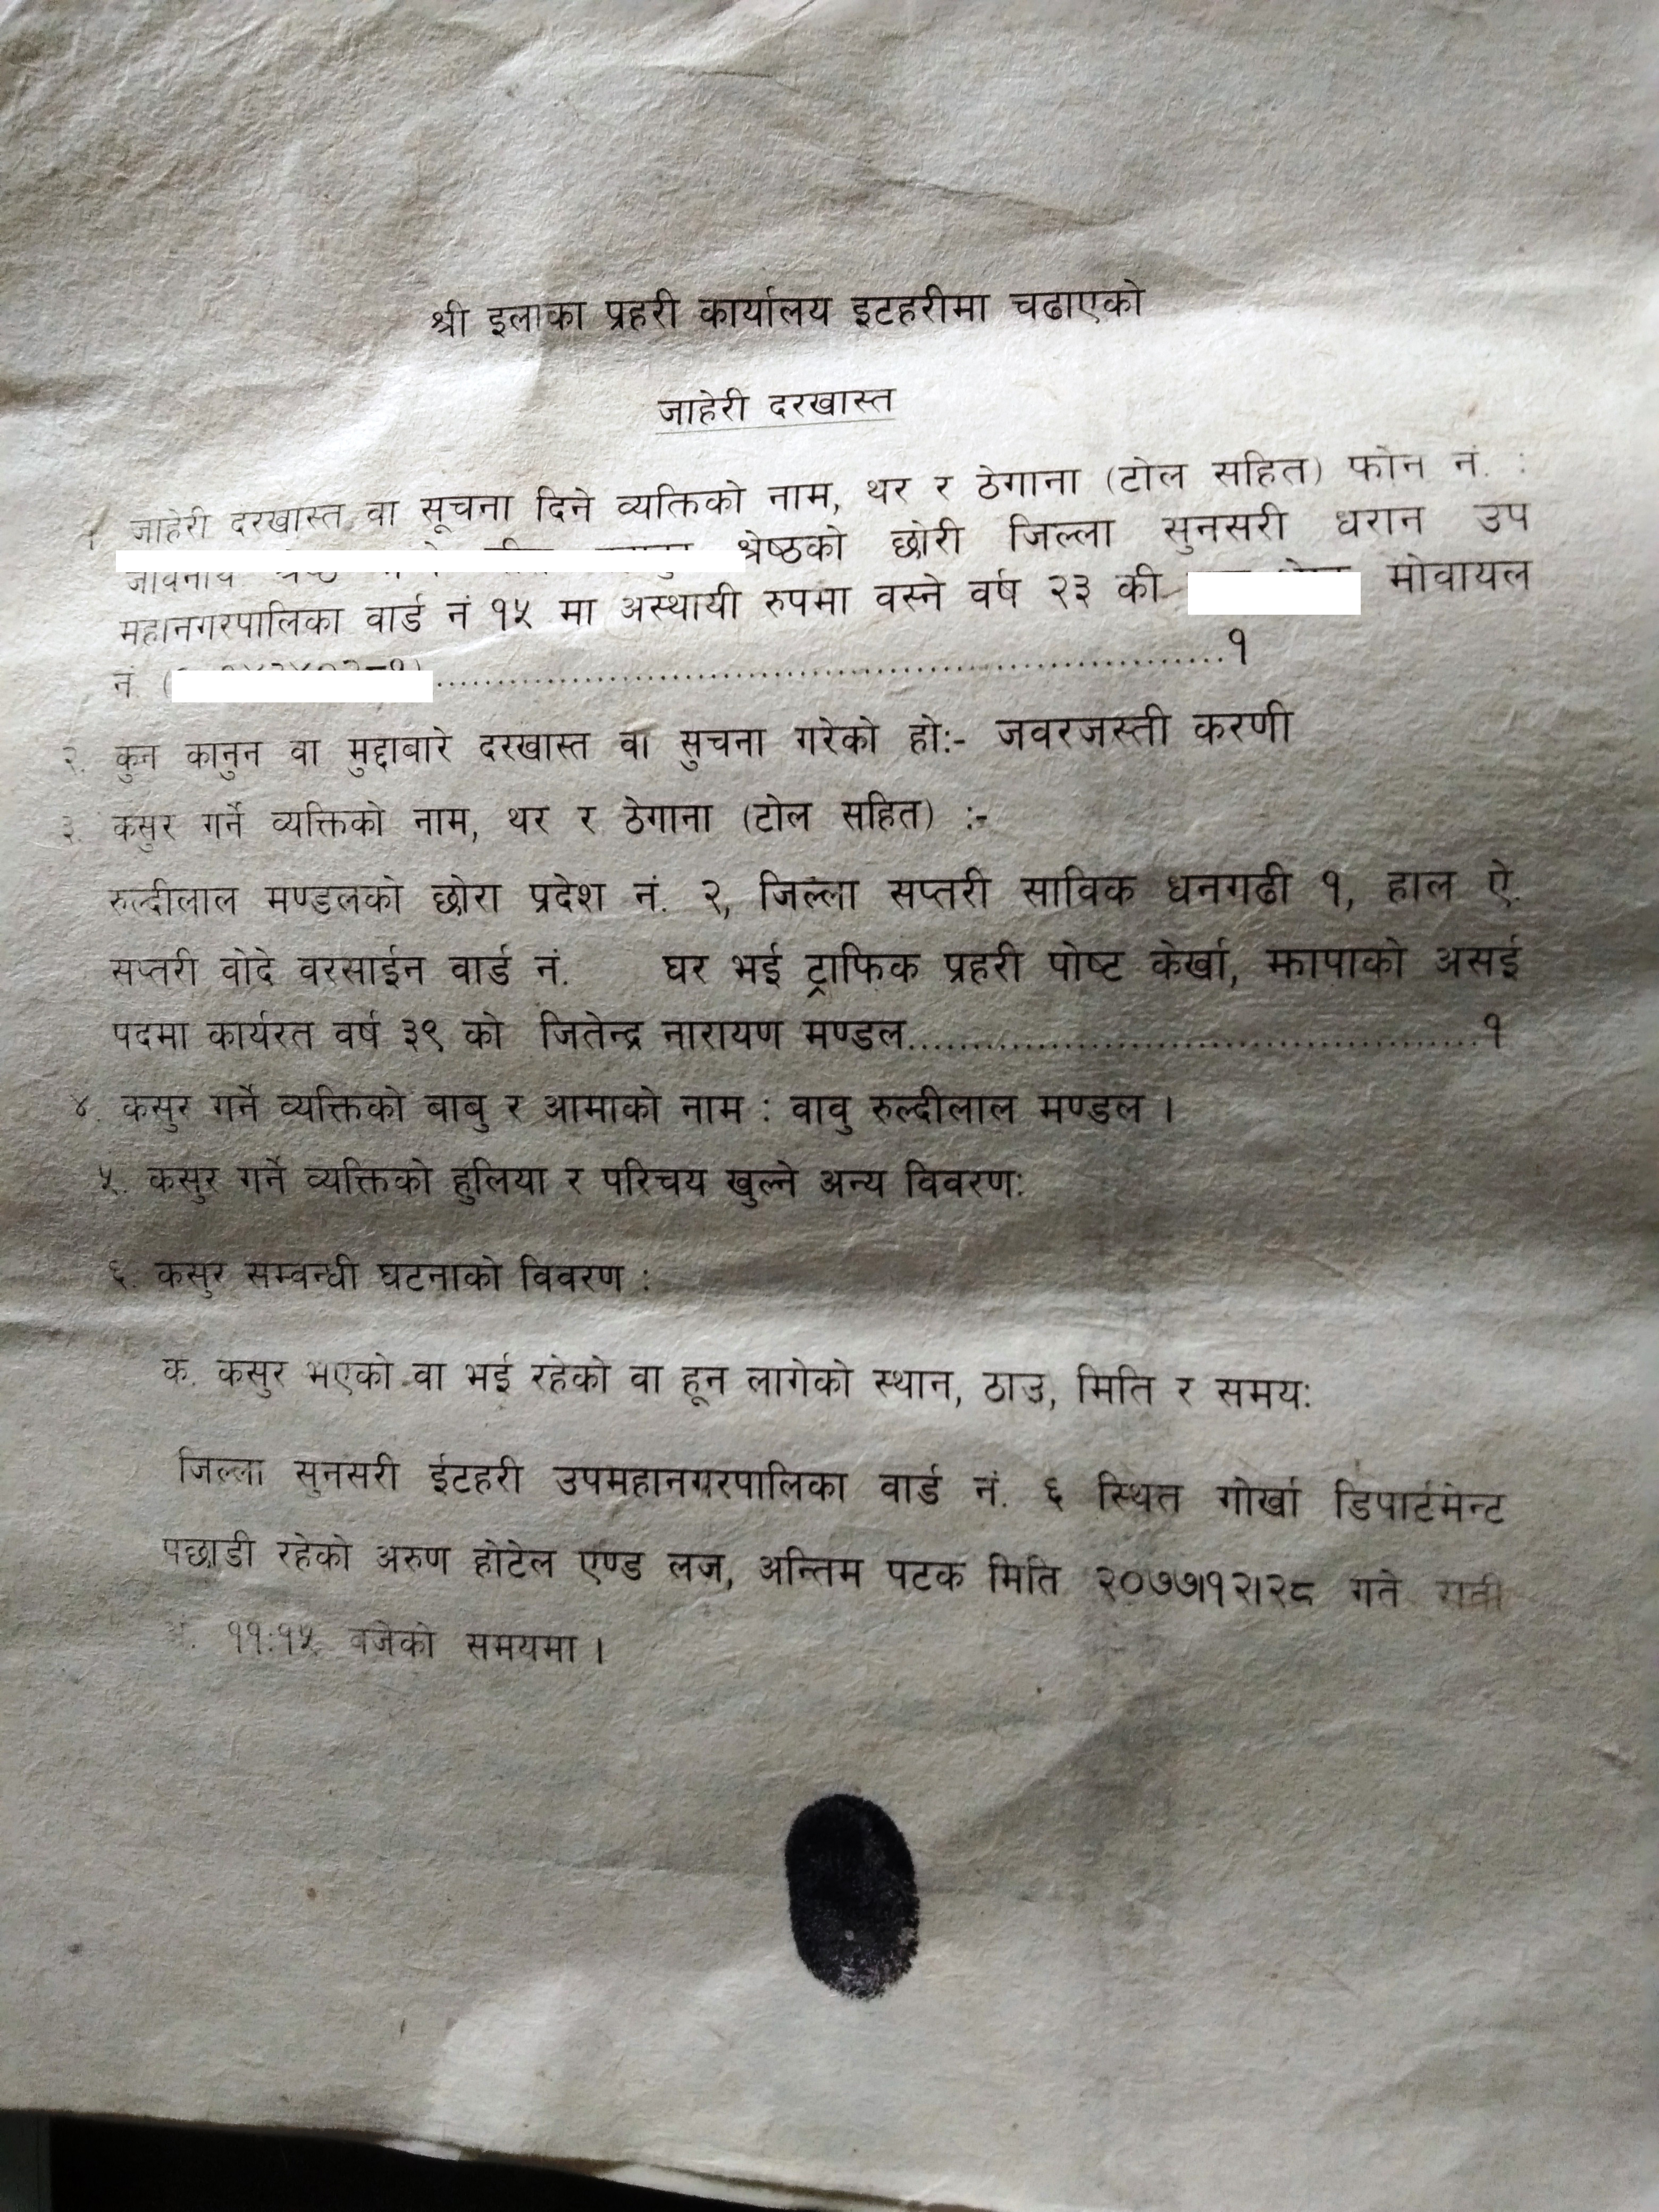 श्री इलाका प्रहरी कार्यालय इटहरीमा चढाएको
जाहेरी दरखास्त
१ जाहेरी दरखास्त वा सूचना दिने व्यक्तिको नाम, थर र ठेगाना (टोल सहित) फोन नं. :
श्रेष्ठको छोरी जिल्ला सुनसरी धरान उप
महानगरपालिका वार्ड नं १५ मा अस्थायी रुपमा वस्ने वर्ष २३ की मोवायल
नं. (..........................................................१
२. कुन कानुन वा मुद्दाबारे दरखास्त वा सुचना गरेको हो:- जवरजस्ती करणी
३. कसुर गर्ने व्यक्तिको नाम, थर र ठेगाना (टोल सहित) :-
रुल्दीलाल मण्डलको छोरा प्रदेश नं. २, जिल्ला सप्तरी साविक धनगढी १, हाल ऐ.
सप्तरी वोदे वरसाईन वार्ड नं. घर भई ट्राफिक प्रहरी पोष्ट केर्खा, झापाको असई
पदमा कार्यरत वर्ष ३९ को जितेन्द्र नारायण मण्डल..........................................१
४. कसुर गर्ने व्यक्तिको बाबु र आमाको नाम : वावु रुल्दीलाल मण्डल ।
५. कसुर गर्ने व्यक्तिको हुलिया र परिचय खुल्ने अन्य विवरण:
६. कसुर सम्वन्धी घटनाको विवरण :
क. कसुर भएको वा भई रहेको वा हून लागेको स्थान, ठाउ, मिति र समय:
जिल्ला सुनसरी ईटहरी उपमहानगरपालिका वार्ड नं. ६ स्थित गोर्खा डिपार्टमेन्ट
पछाडी रहेको अरुण होटेल एण्ड लज, अन्तिम पटक मिति २०७७।१२।२८ गते
११:१५ वजेको समयमा ।